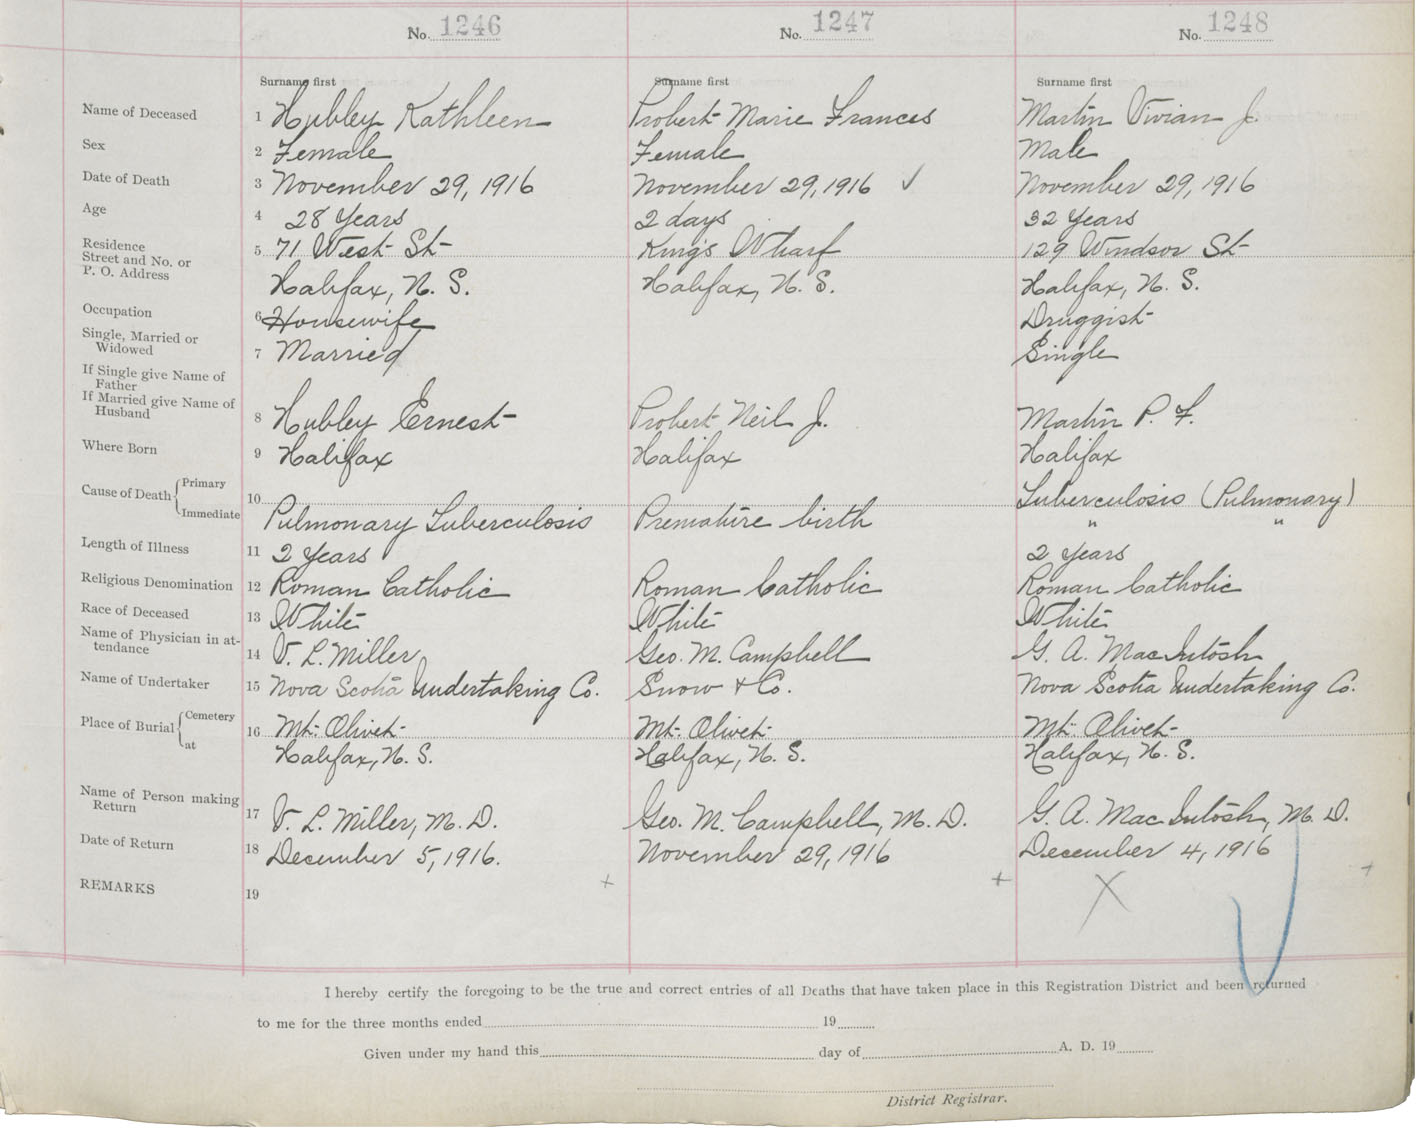 No. 1246 No. 1247 No. 1248
Surname first Surname first Surname first
Name of Deceased 1 Hubley Kathleen Probert Marie Frances Martin Vivian J.
Sex 2 Female Female Male
Date of Death 3 November 29, 1916 November 29, 1916 ✓ November 29, 1916
Age 4 28 Years 2 days 32 Years
Residence 5 71 West St Kings Wharf 129 Windsor St
Street and No. or
P. O. Address Halifax, N. S. Halifax, N. S. Halifax, N. S.
Occupation 6 Housewife Druggist
Single, Married or
Widowed 7 Married Single
If Single give Name of
Father
If Married give Name of
Husband 8 Hubley Ernest Probert Neil J. Martin P. F.
Where Born 9 Halifax Halifax Halifax
Cause of Death { Primary 10 Tuberculosis (Pulmonary)
Immediate Pulmonary Tuberculosis Premature birth " "
Length of Illness 11 2 Years 2 Years
Religious Denomination 12 Roman Catholic Roman Catholic Roman Catholic
Race of Deceased 13 White White White
Name of Physician in at-
tendance 14 V. L. Miller Geo. M. Campbell G. A. MacIntosh
Name of Undertaker 15 Nova Scotia Undertaking Co. Snow & Co. Nova Scotia Undertaking Co.
Place of Burial { Cemetery 16 Mt. Olivet Mt. Olivet Mt. Olivet
at Halifax, N. S. Halifax, N. S. Halifax, N. S.
Name of Person making
Return 17 V. L. Miller, M. D. Geo. M. Campbell, M. D. G. A. MacIntosh, M. D.
Date of Return 18 December 5, 1916. November 29, 1916 December 4, 1916
REMARKS 19 + + X +
I hereby certify the foregoing to be the true and correct entries of all Deaths that have taken place in this Registration District and been returned
to me for the three months ended 19
Given under my hand this day of A. D. 19
District Registrar.